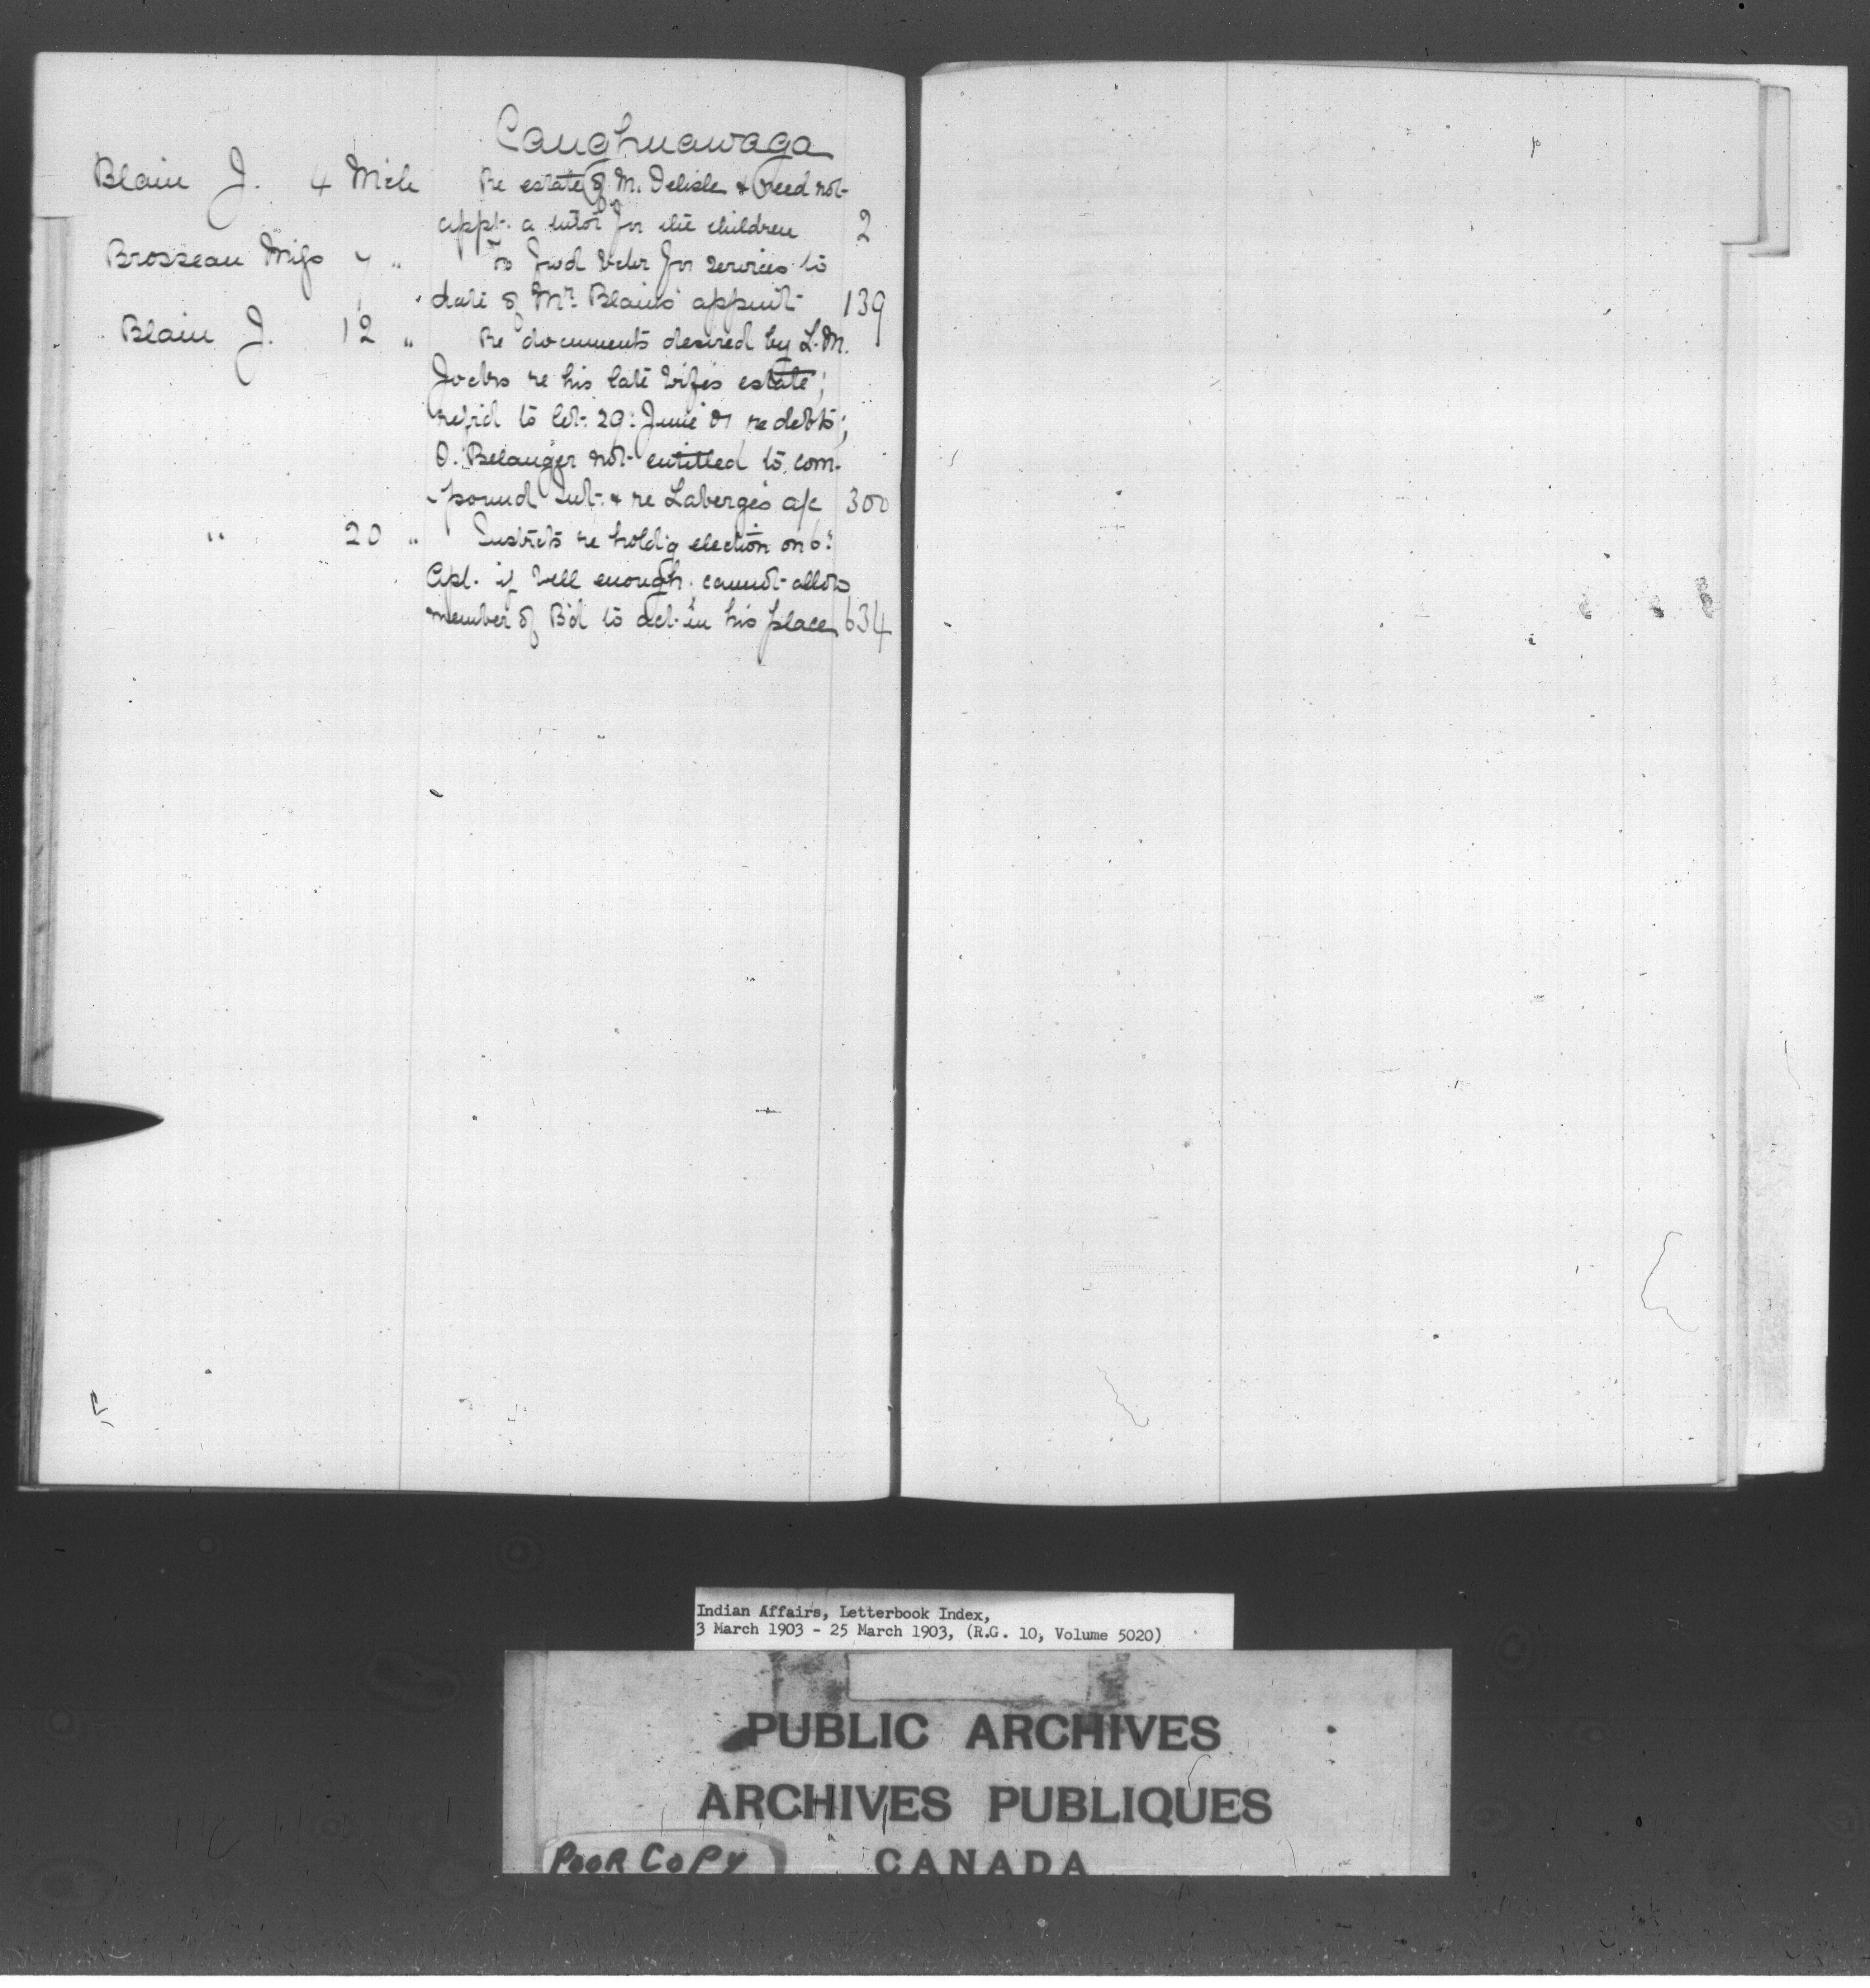 Caughnawaga
Blain J. 4 Mch Re estate of M. Delisle & need not
appt. a tutor for the children 2
Brosseau Miss 7 " To fwd vchr for services to
date of Mr. Blain's appmt 139
Blain J. 12 " Re documents desired by L. M.
Jocks re his late wife's estate;
ref'd to let. 29: June 01 re debts;
O. Belanger not entitled to com-
-pound int. & re Laberge's a/c 300
" 20 " Instrcts re hold'g election on 6:
Apl. if well enough; cannot allow
member of B'd to act in his place 634
Indian Affairs, Letterbook Index,
3 March 1903 - 25 March 1903, (R.G. 10, Volume 5020)
PUBLIC ARCHIVES
ARCHIVES PUBLIQUES
CANADA
POOR COPY